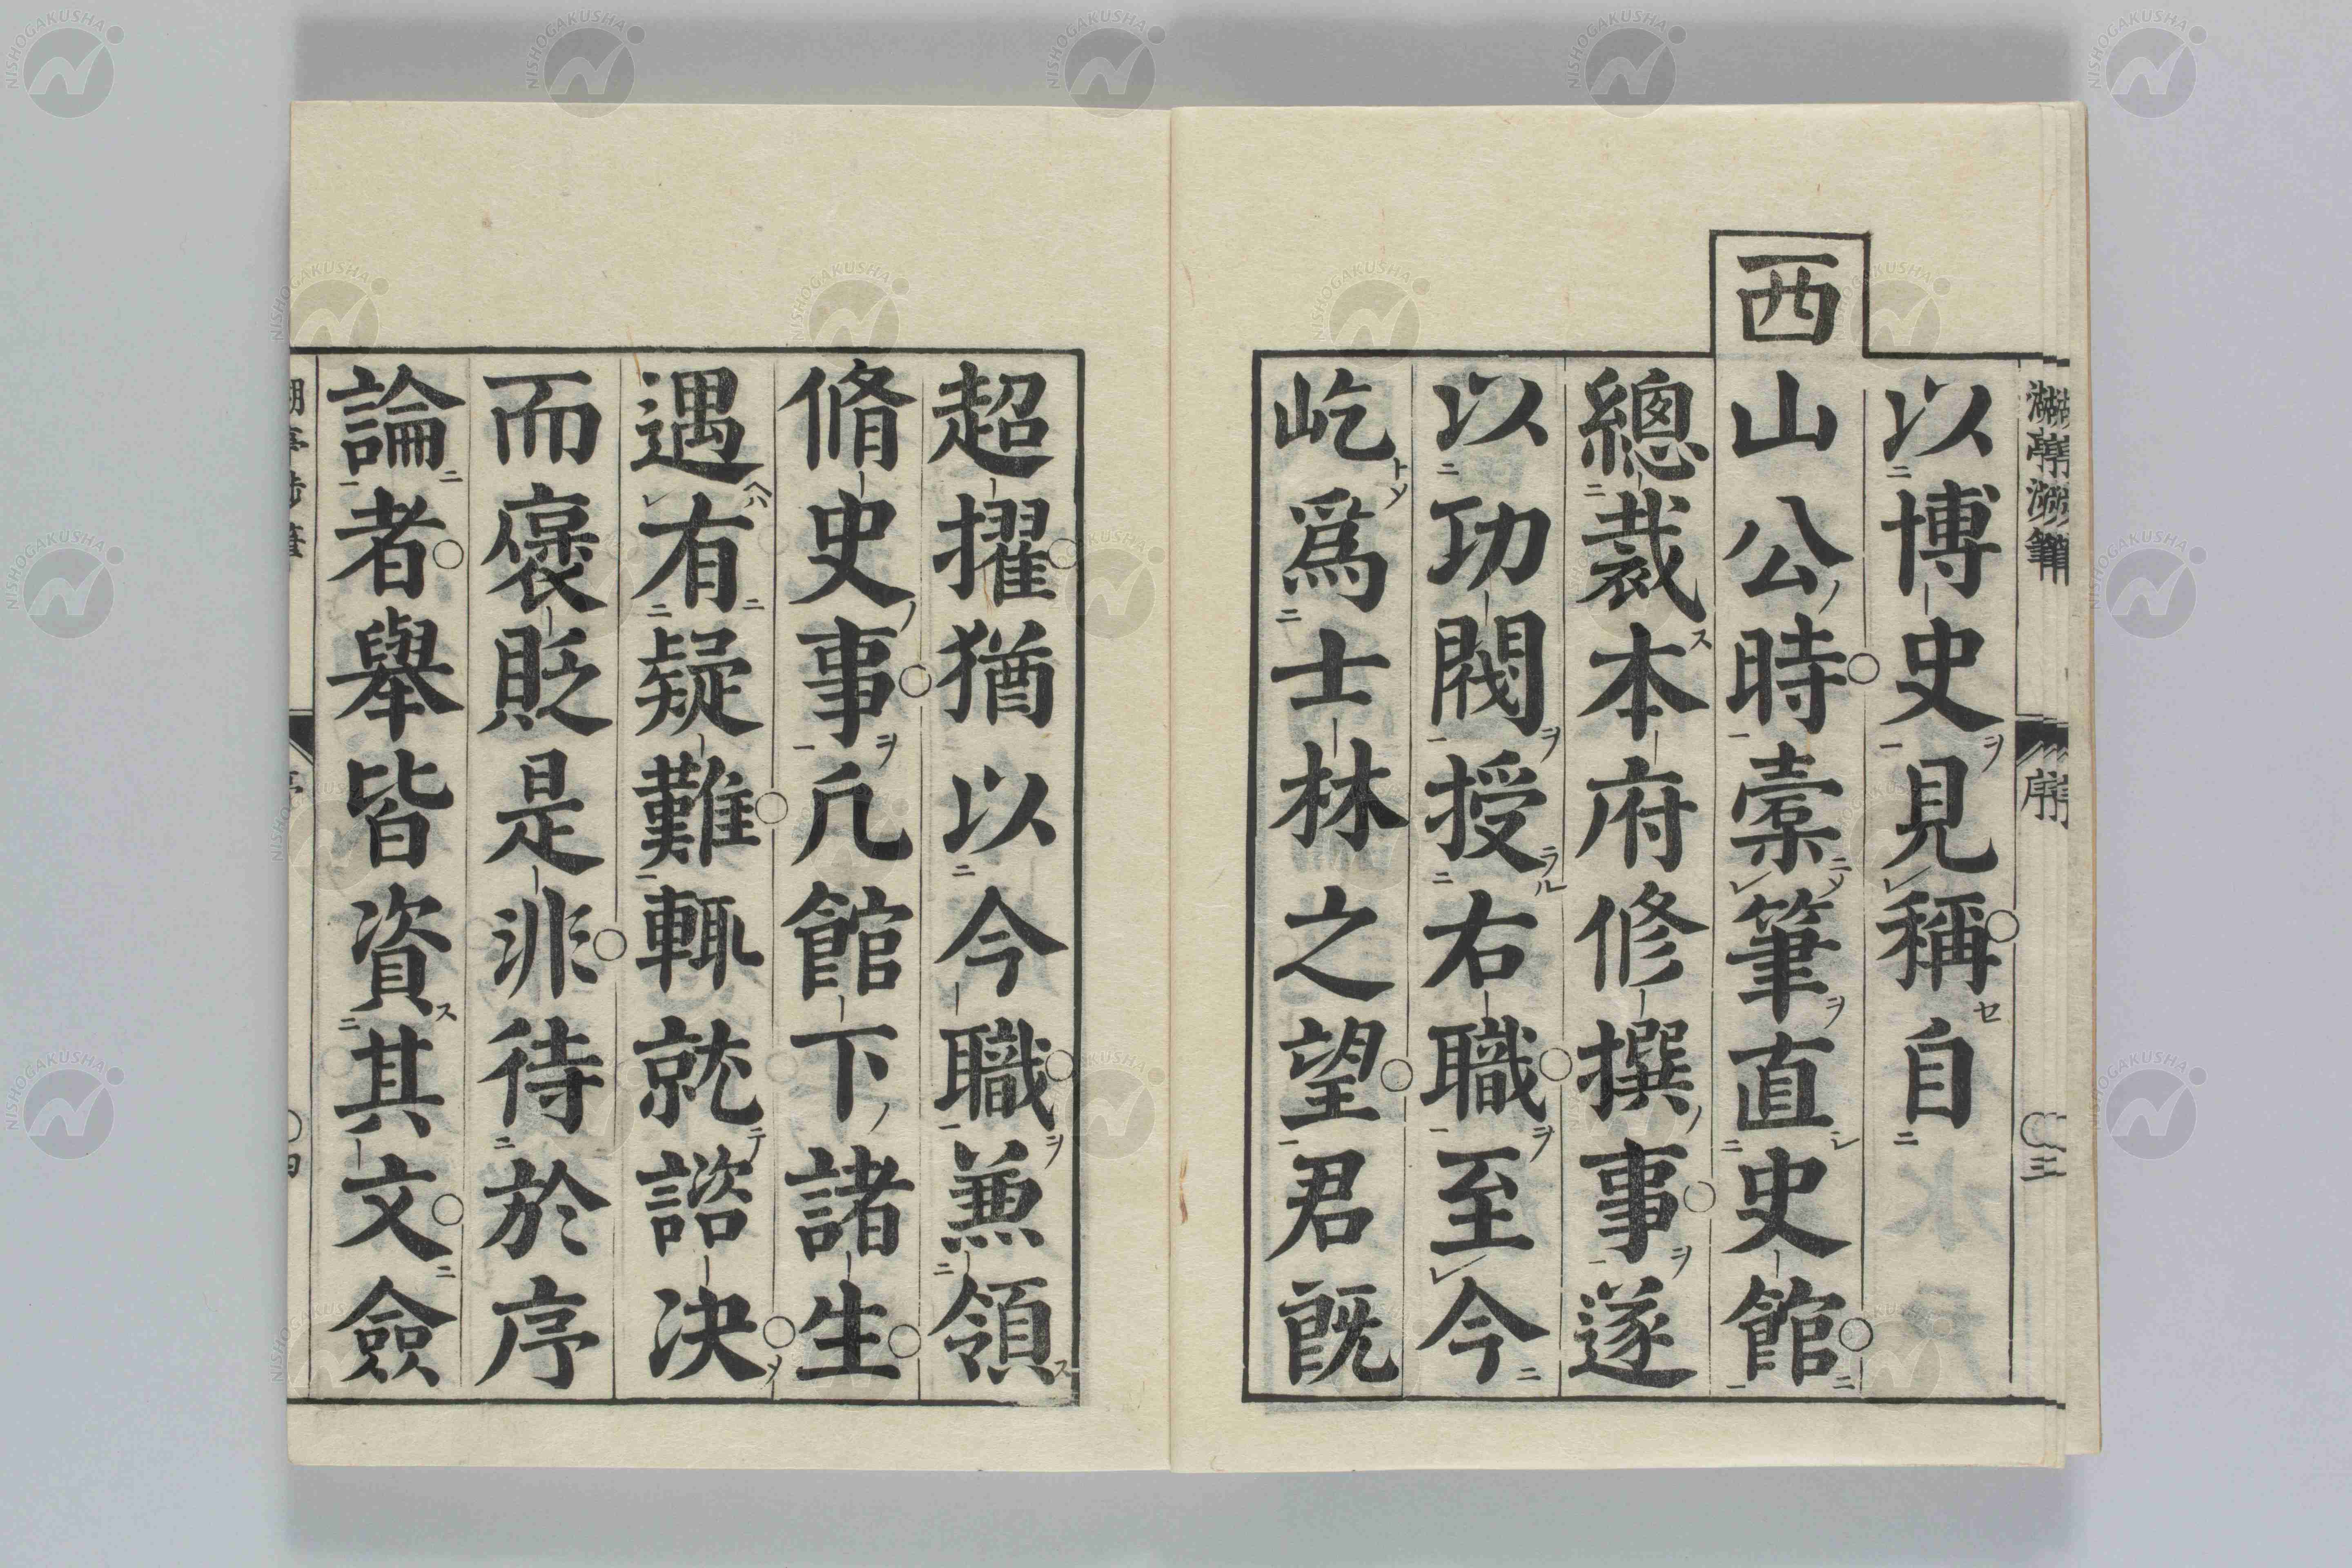 湖亭渉筆 序 三
以博史見稱自
西山公時橐筆直史館
總裁本府修撰事遂
以功閥授右職至今
屹爲士林之望君既
超擢猶以今職兼領
脩史事凡館下諸生
遇有疑難輒就諮决
而褒貶是非待於序
論者擧皆資其文僉